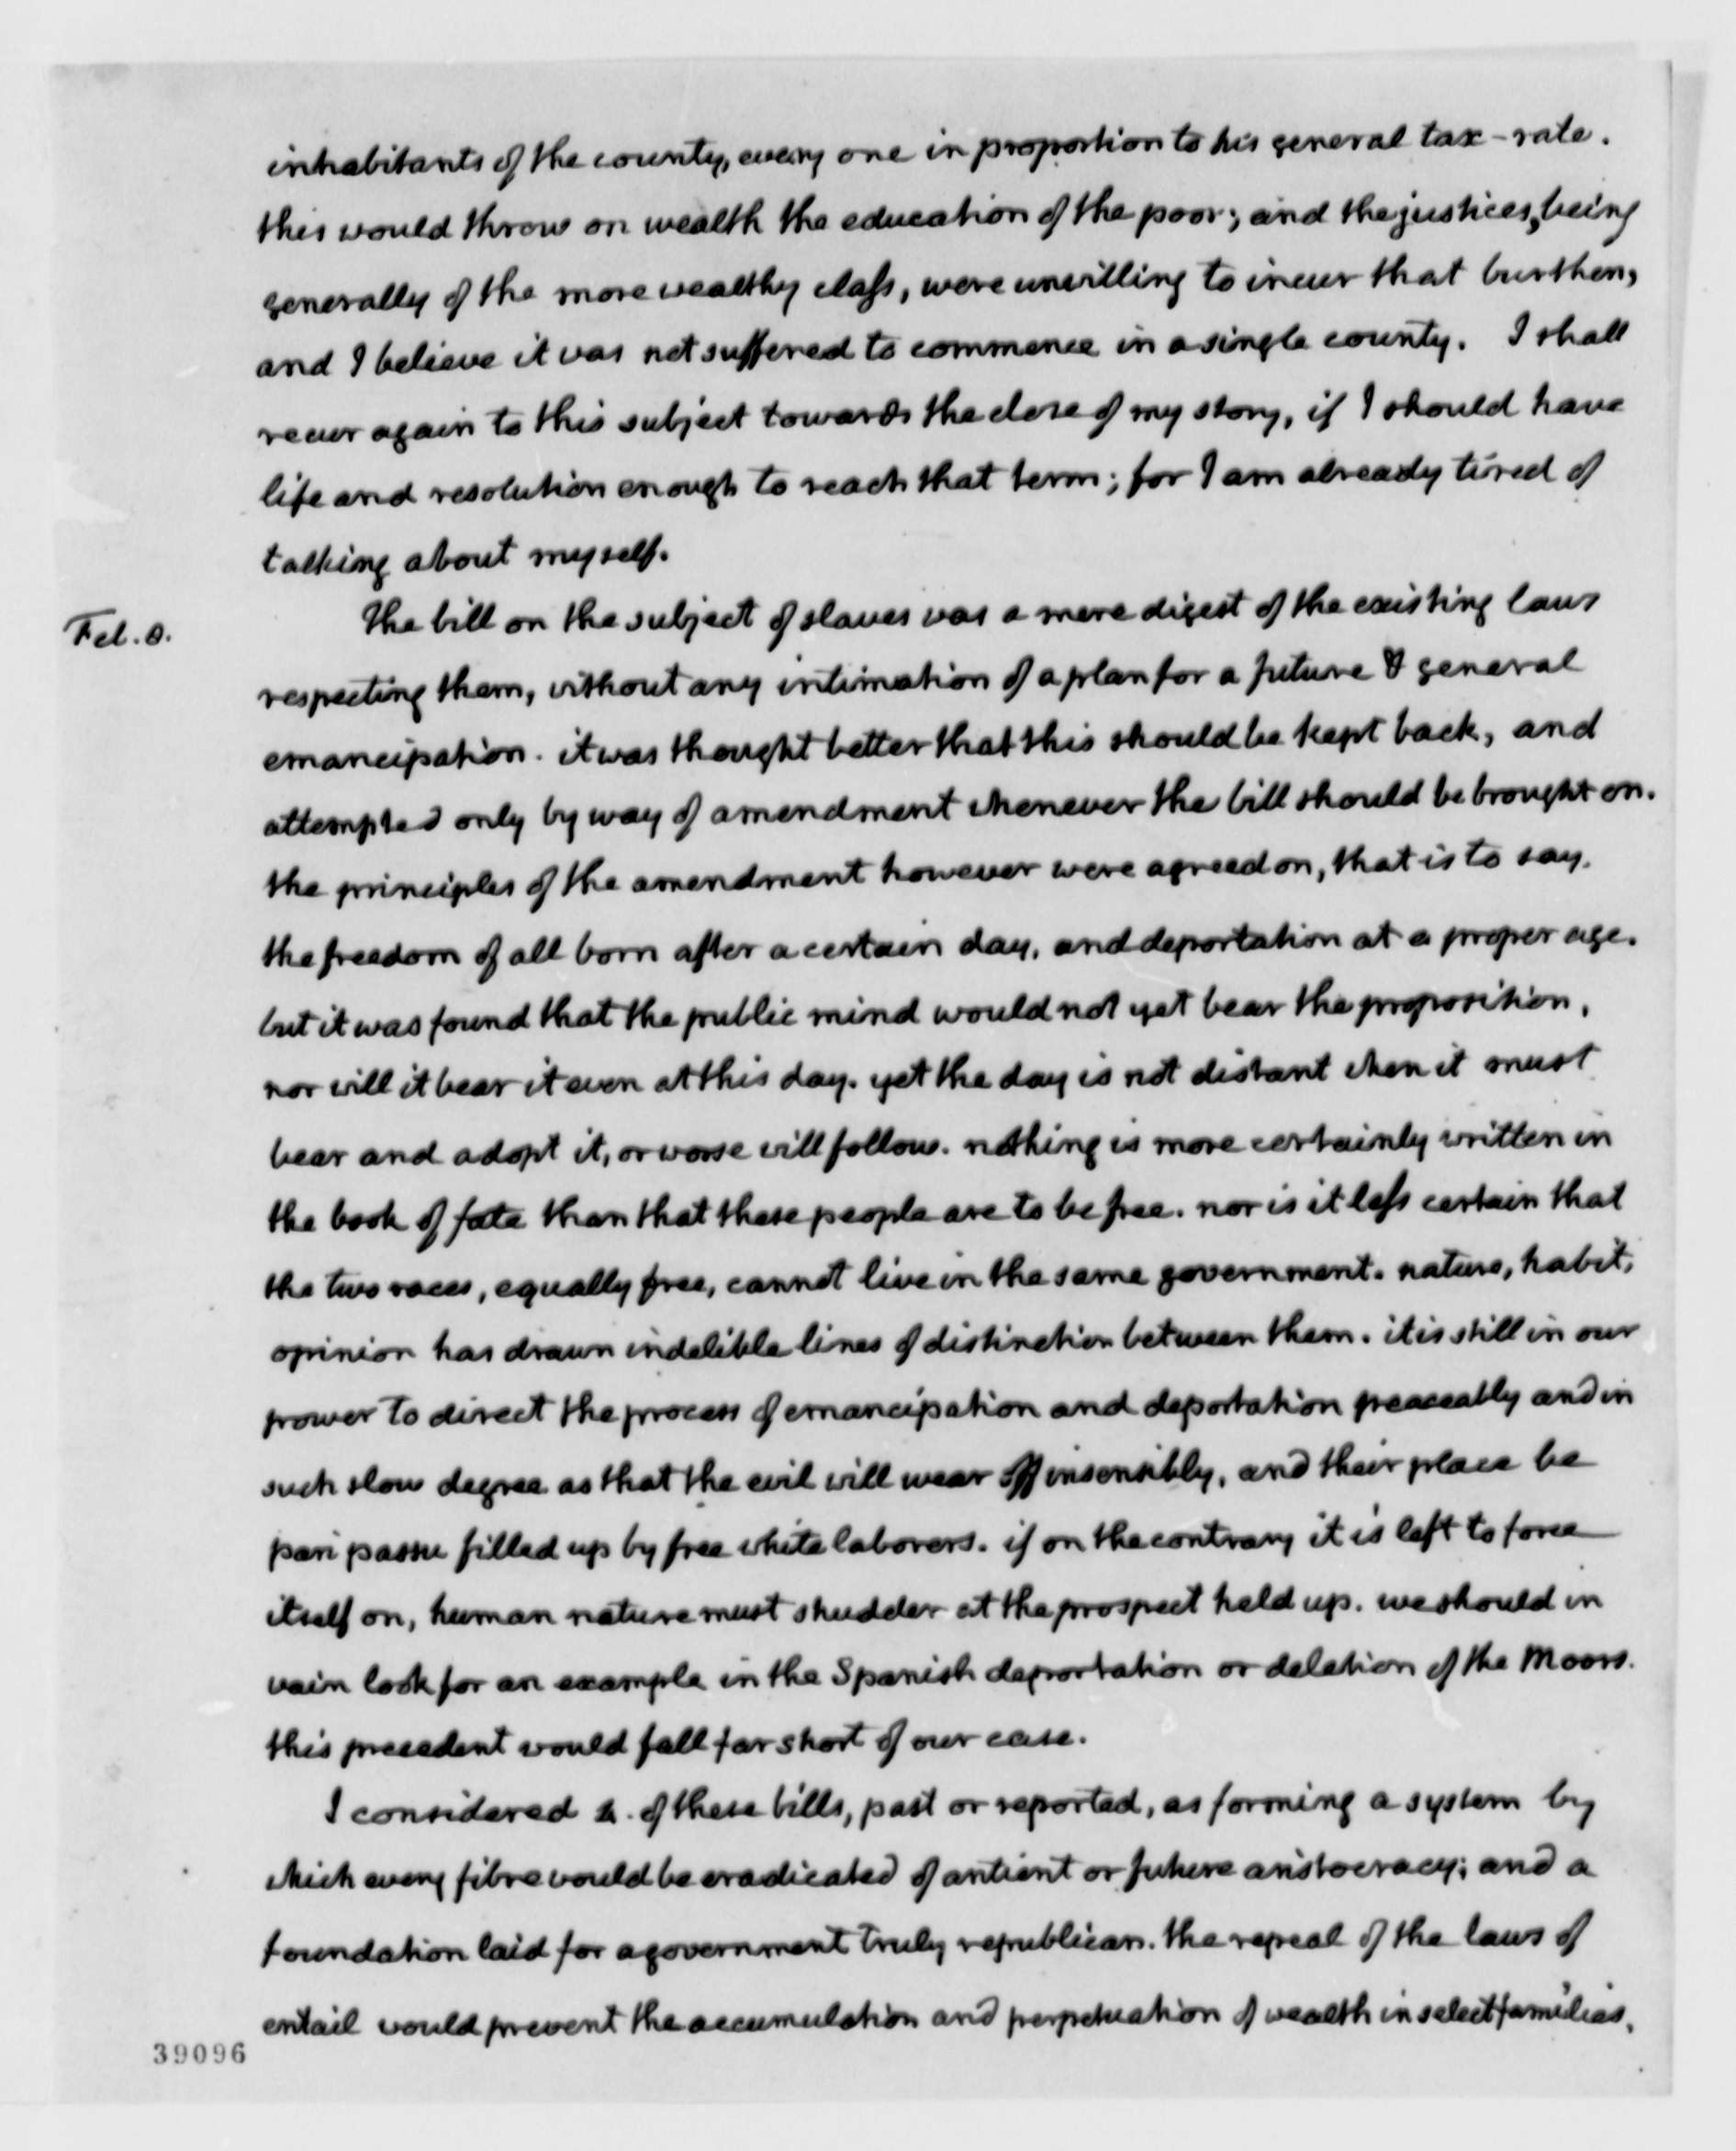 inhabitants of the county, every one in proportion to his general tax-rate.
this would throw on wealth the education of the poor; and the justices, being
generally of the more wealthy class, were unwilling to incur that burthen,
and I believe it was not suffered to commence in a single county. I shall
recur again to this subject towards the close of my story, if I should have
life and resolution enough to reach that term; for I am already tired of
talking about myself.
Feb. 8.
The bill on the subject of slaves was a mere digest of the existing laws
respecting them, without any intimation of a plan for a future & general
emancipation. it was thought better that this should be kept back, and
attempted only by way of amendment whenever the bill should be brought on.
the principles of the amendment however were agreed on, that is to say,
the freedom of all born after a certain day, and deportation at a proper age.
but it was found that the public mind would not yet bear the proposition,
nor will it bear it even at this day. yet the day is not distant when it must
bear and adopt it, or worse will follow. nothing is more certainly written in
the book of fate than that these people are to be free. nor is it less certain that
the two races, equally free, cannot live in the same government. nature, habit,
opinion has drawn indelible lines of distinction between them. it is still in our
power to direct the process of emancipation and deportation peaceably and in
such slow degree as that the evil will wear off insensibly, and their place be
pari passu filled up by free white laborers. if on the contrary it is left to force
itself on, human nature must shudder at the prospect held up. we should in
vain look for an example in the Spanish deportation or deletion of the Moors.
this precedent would fall far short of our case.
I considered 4. of these bills, past or reported, as forming a system by
which every fibre would be eradicated of antient or future aristocracy; and a
foundation laid for a government truly republican. the repeal of the laws of
entail would prevent the accumulation and perpetuation of wealth in select families,
39096